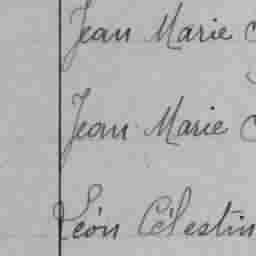 Jean Marie
Jean Marie
Léon Célestin